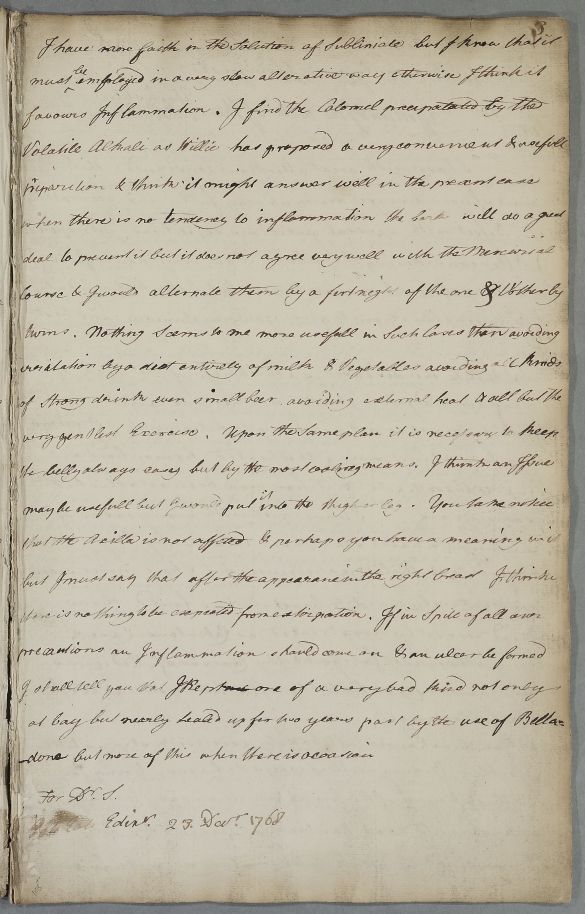 3
I have more faith in the Solution of Sublimate but I know that it
must be employed in a very slow alterative way otherwise I think it
favours Inflammation. I find the Calomel precipitated by the
Volatile Alkali as Willie has proposed a very convenient & usefull
preparation & think it might answer well in the present case
when there is no tendency to inflammation the bark will do a great
deal to prevent it but it does not agree very well with the Mercurial
Course & I would alternate them by a fortnight of the one & the other by
turns. Nothing seems to me more usefull in such Cases than avoiding
irritation by a diet entirely of milk & Vegetables avoiding all kinds
of strong drink even small beer avoiding external heat & all but the
very gentlest Exercise. Upon the same plan it is necessary to keep
the belly always easy but by the most cooling means. I think an Issue
may be usefull but I would put it into the thigh or leg. You take notice
that the Axilla is not affected & perhaps you have a meaning in it
but I must say that after the appearance in the right breast I think
there is nothing to be expected from extirpation. If in spite of all our
precautions an Inflammation should come on & an ulcer be formed
I shall tell you that I kept one of a very bad kind not only
at bay but nearly healed up for two years past by the use of Bella-
-dona but more of this when there is occasion
For Dr. S.
Edinr. 23. Decr. 1768